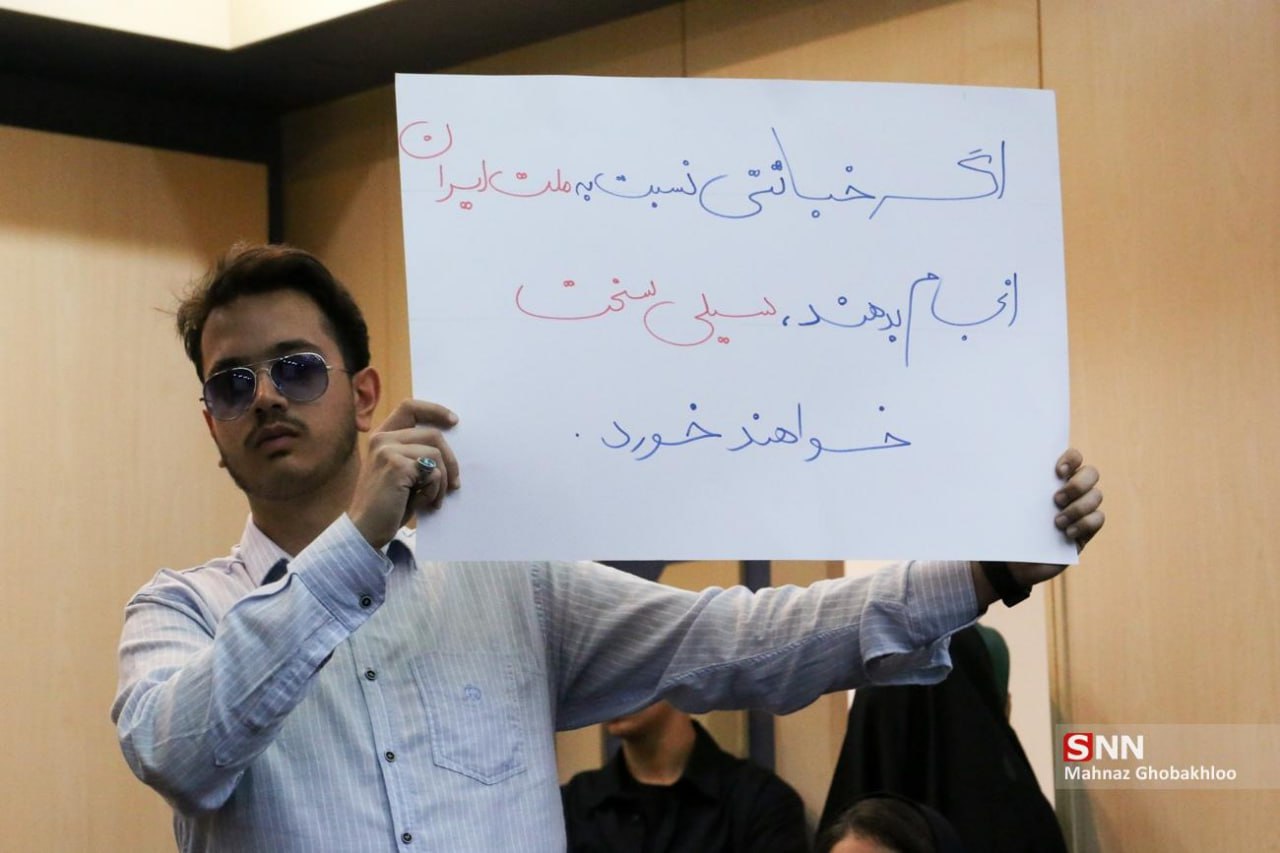 اگر خباثتی نسبت به ملت ایران
انجام بدهند، سیلی سختی
خواهند خورد.
SNN
Mahnaz Ghobakhloo